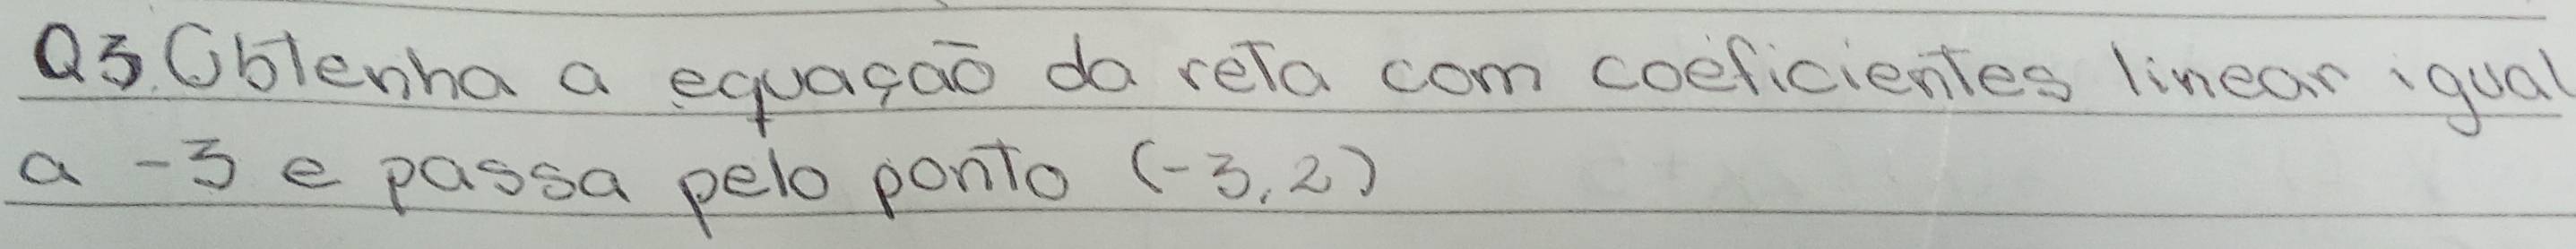 Q3. Obtenha a equação da reta com coeficientes linear igual
a -3 e passa pelo ponto (-3,2)